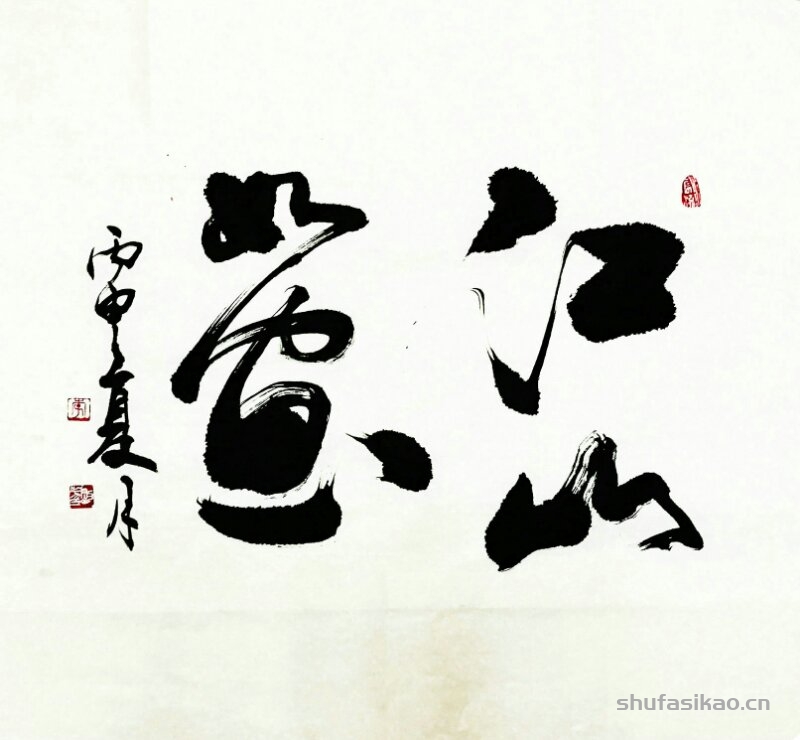 江山
如畫
丙申夏月
shufasikao.cn